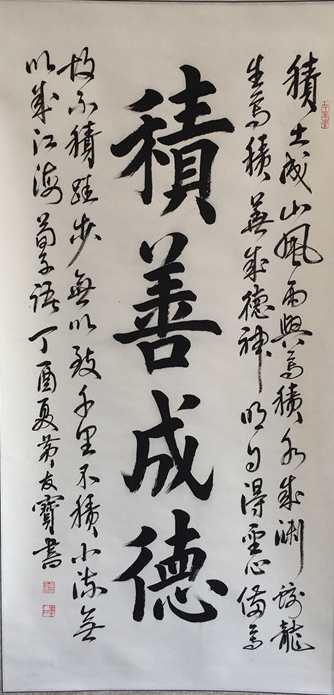 積土成山風雨興焉積水成淵蛟龍
生焉積善成德神明自得聖心備焉
積善成德
故不積跬步無以致千里不積小流無
以成江海荀子語丁酉夏友寶書